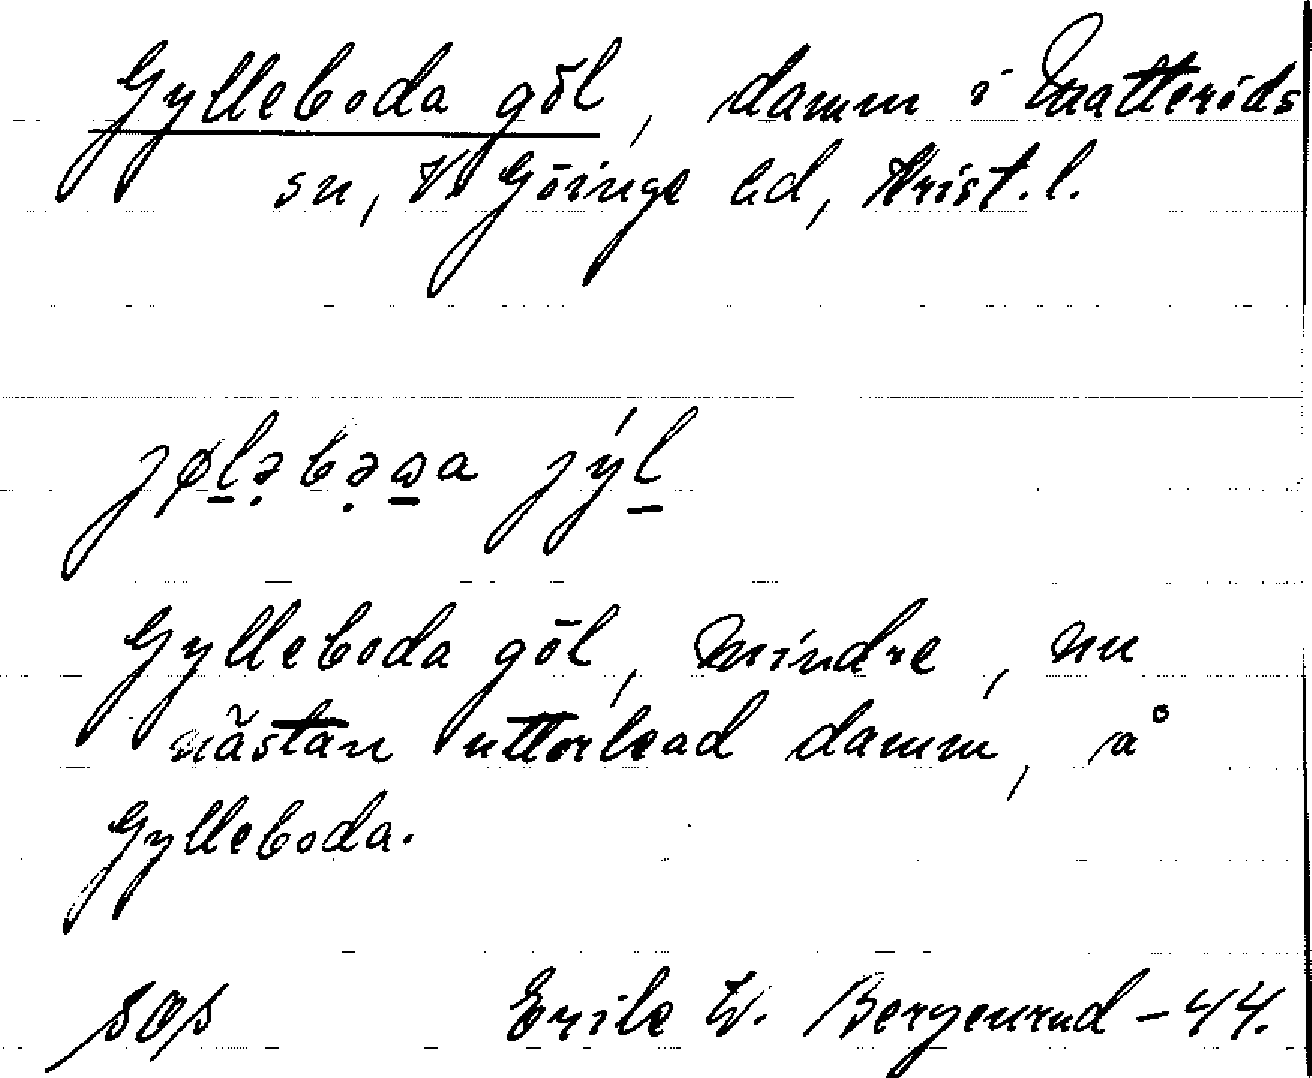 Gylleboda göl, damm i Matteröds
sn, V. Göinge hd, Krist. l.
jøl̲ə̣bə̣ꞷ̲a jýl̲
Gylleboda göl, mindre, nu
nästan uttorkad damm, å
Gylleboda.
Erik W. Bergenrud - 44.